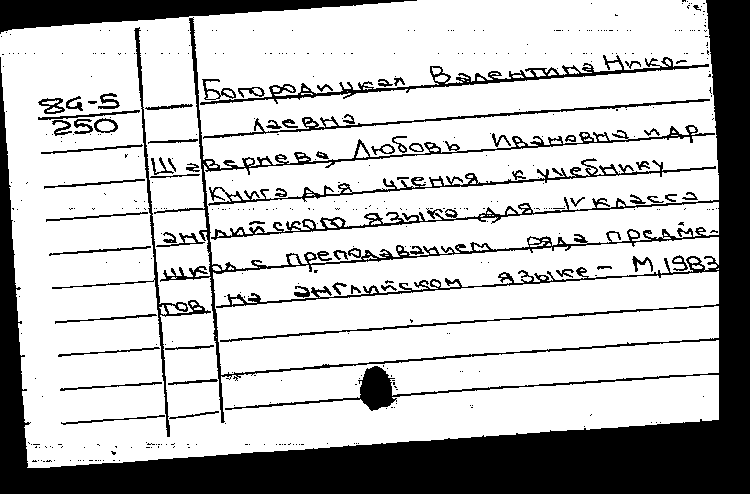 84-5
250
Богородицкая, Валентина Нико-
лаевна
Шавернева, Любовь Ивановна и др
Книга для чтения к учебнику
английского языка для IV класса
школ с преподаванием ряда предме-
тов на английском языке - М, 1983